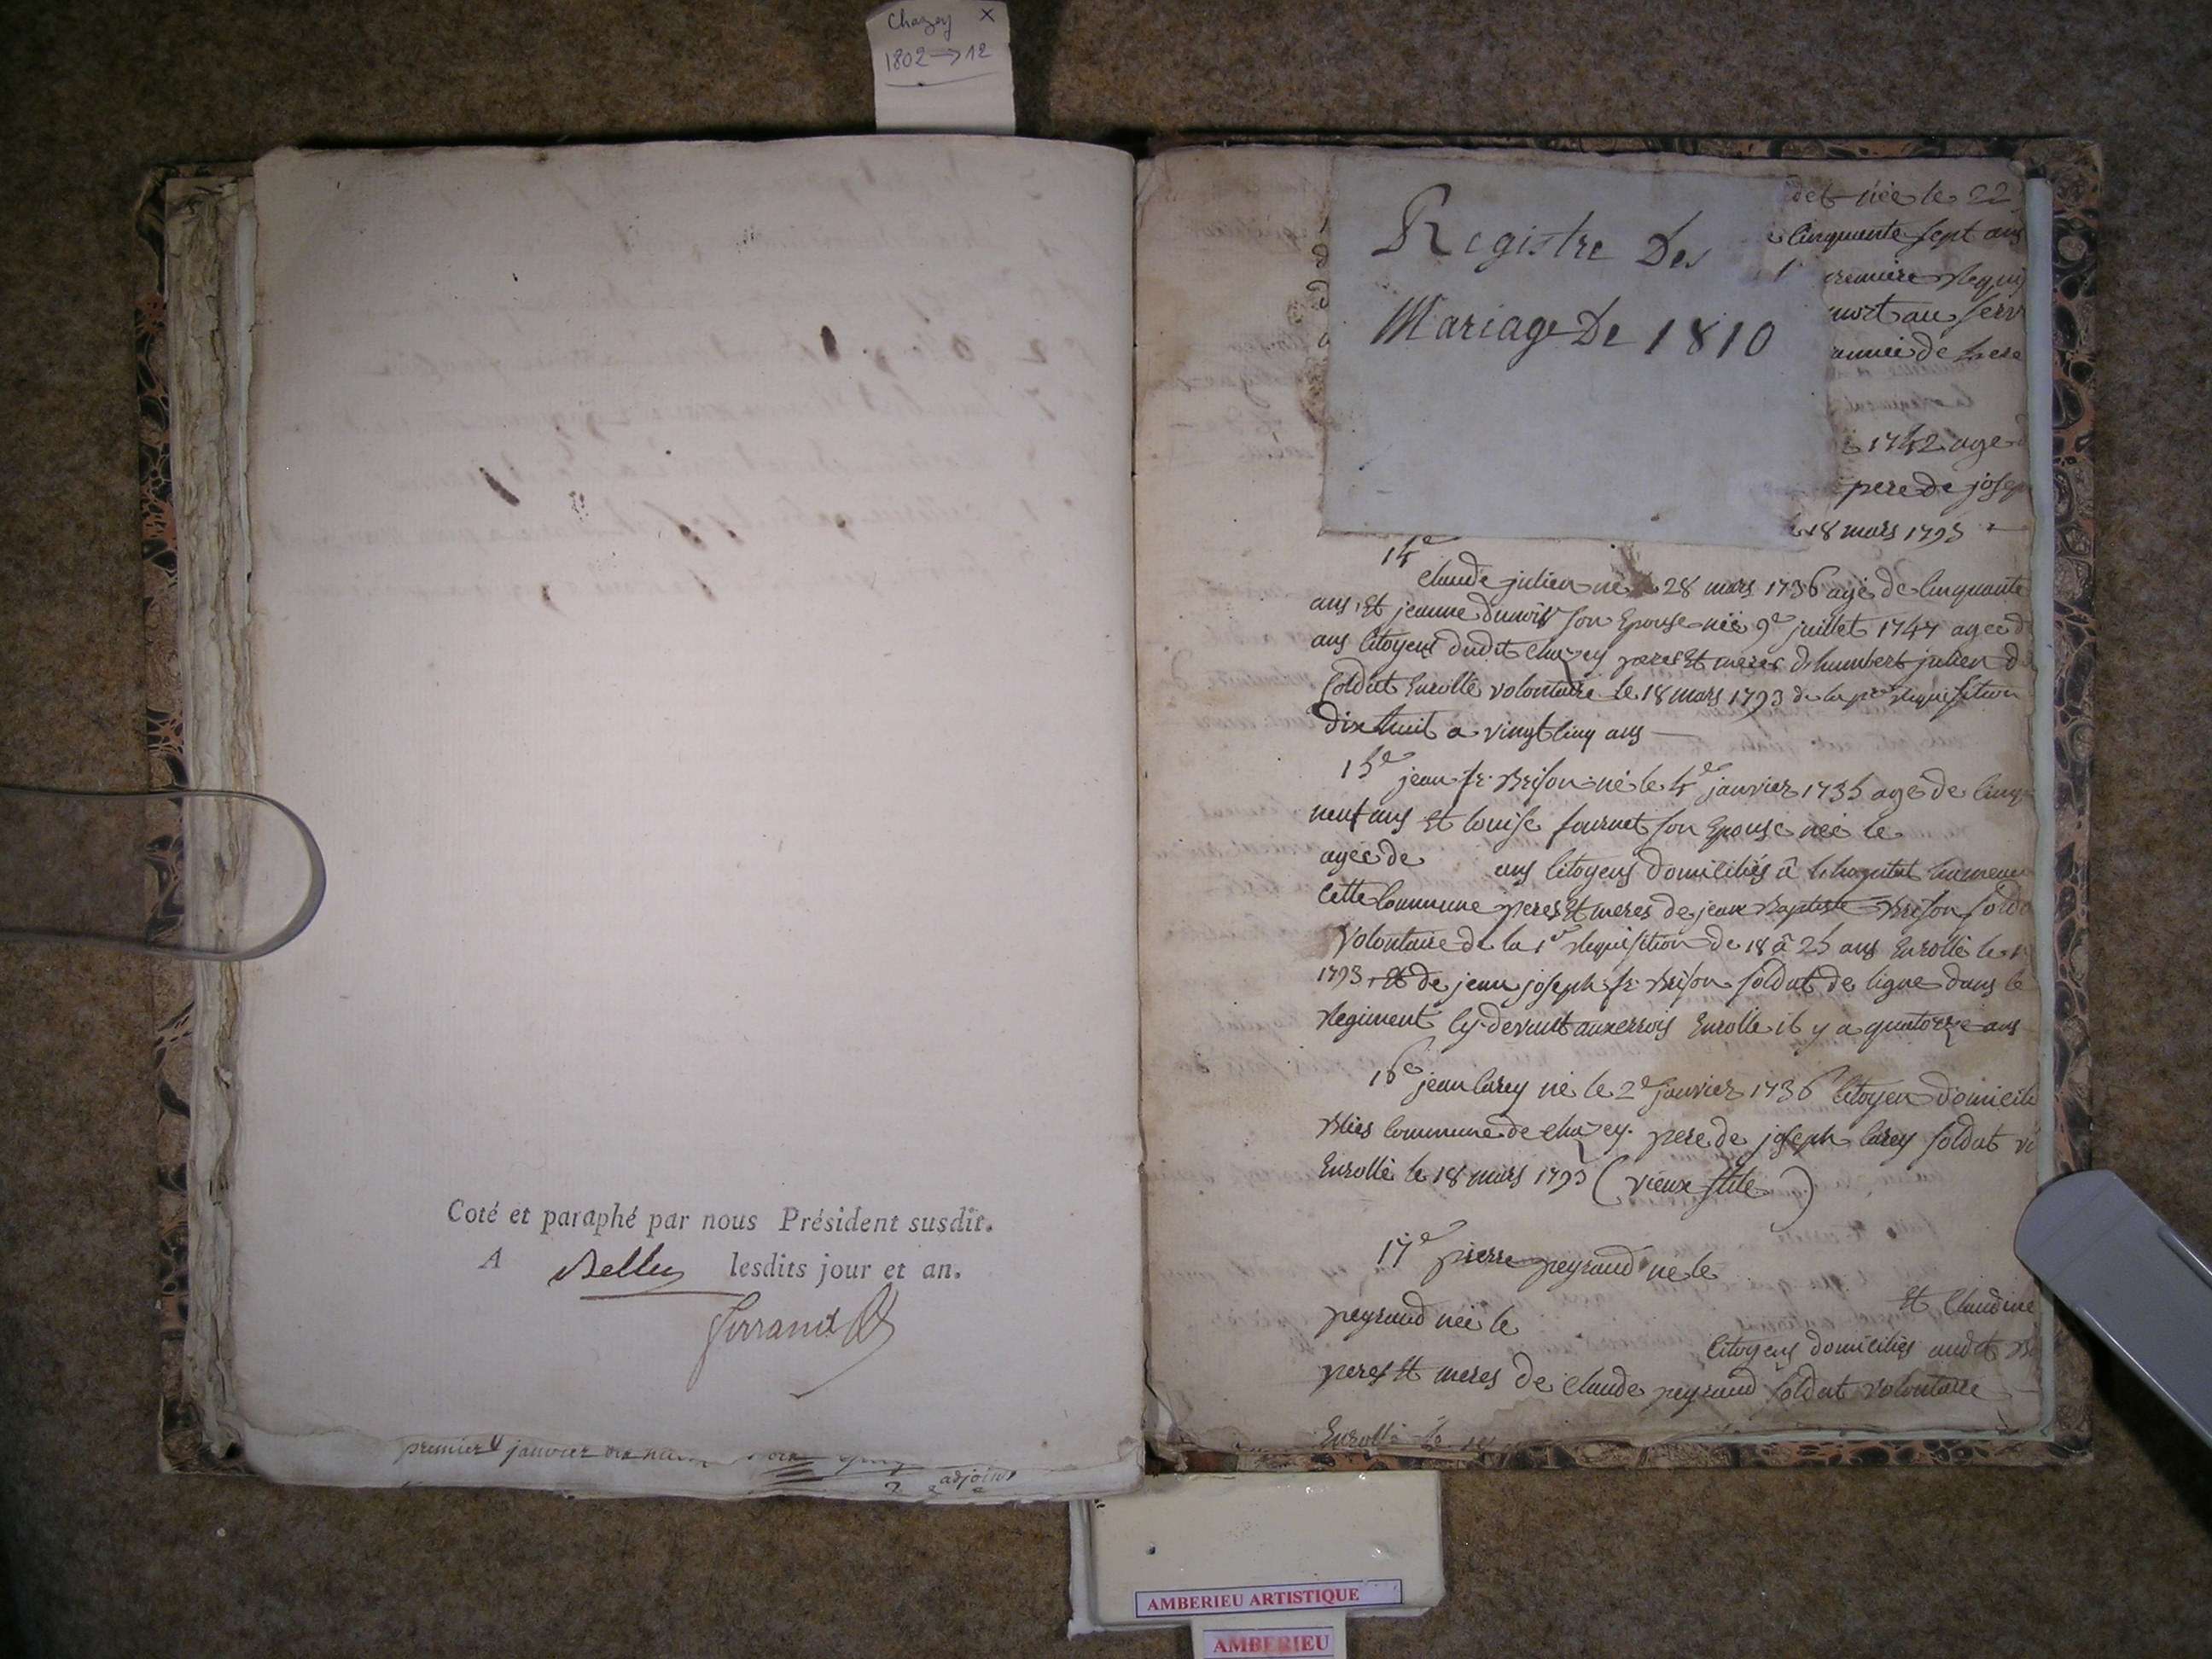 Chazey X
1802 → 12
Coté et paraphé par nous Président susdit.
A Belley lesdits jour et an.
Ferrand
premier janvier
adjoint
Registre Des
Mariage De 1810
née le 22
cinquante sept ans
premiere requi
mort au serv
armée de
1742 age
pere de josep
18 mars 1793
14e
Claude julien né 28 mars 1736 agé de cinquante
ans, Et jeanne dunois son Epouse née 9e juillet 1747 agee d
ans Citoyens dudit Chazey peres Et meres d'humbert julien d
soldat Enrollé volontaire le 18 mars 1793 de la pre requisition
dix huit a vingt cinq ans
15e jean fr. Brison né le 4e janvier 1735 agé de cinq
neuf ans Et louise fournet son Epouse née le
agée de ans Citoyens domiciliés â
cette Commune peres Et meres de jean Baptiste Brison solda
volontaire de la 1re requisition de 18 â 25 ans Enrollé le 1
1793, Et de jean joseph fr. Brison soldat de ligne dans le
regiment cy-devant auxerrois Enrollé il y a quatorze ans
16e jean Carey né le 2e janvier 1736 Citoyen domicili
Blies Commune de Chazey. pere de joseph Carey soldat vo
Enrollé le 18 mars 1793 (vieux stile)
17e pierre peyraud né le
Et Claudine
peyraud née le
Citoyens domiciliés audit
peres Et meres de Claude peyraud soldat volontaire
Enrollé le 18
AMBERIEU ARTISTIQUE
AMBERIEU